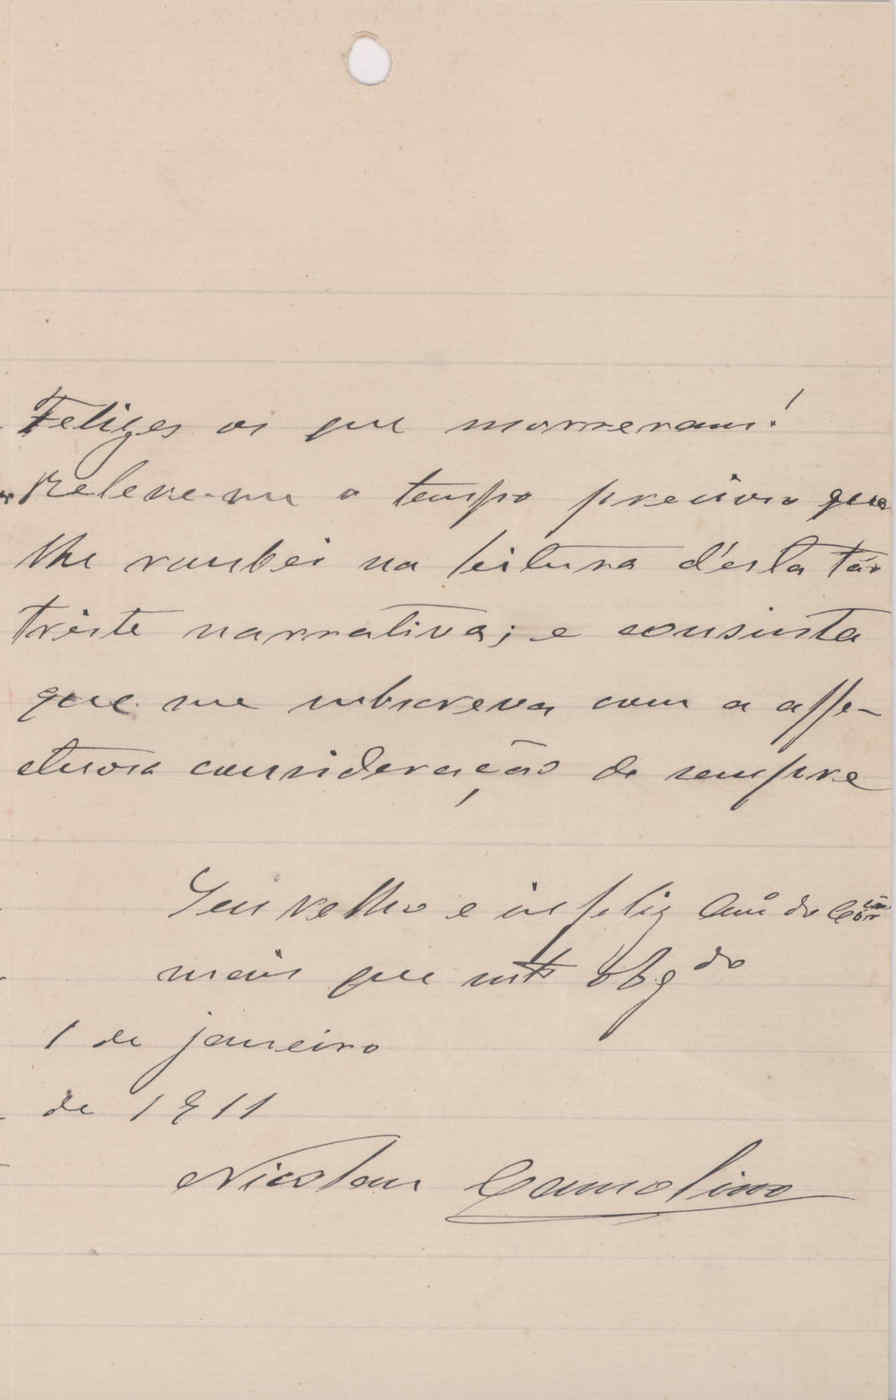 Felizes os que morreram!
Releve-me o tempo precioso que
lhe roubei na leitura d'esta tão
triste narrativa; e consinta
que me subscreva com a affe-
ctuosa consideração de sempre
Seu velho e infeliz Amº do Cor
mais que mto obgdo
1 de janeiro
de 1911
Nicolau Camolino